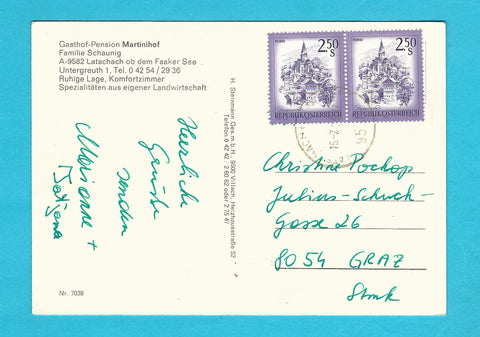 Gasthof-Pension Martinihof
Familie Schaunig
A-9582 Latschach ob dem Faaker See
Untergreuth 1, Tel. 0 42 54 / 29 36
Ruhige Lage, Komfortzimmer
Spezialitäten aus eigener Landwirtschaft
Herzliche
Grüße
senden
Marianne +
Tatjana
Nr. 7038
H. Steinmann Ges.m.b.H., 9500 Villach, Heizhausstraße 52
Telefon 0 42 42 - 2 89 62 oder 2 75 47
MURAU
2.50
S
REPUBLIK ÖSTERREICH
MURAU
2.50
S
REPUBLIK ÖSTERREICH
Christine
Julius-Schuch-
Gasse 26
8054 GRAZ
Stmk